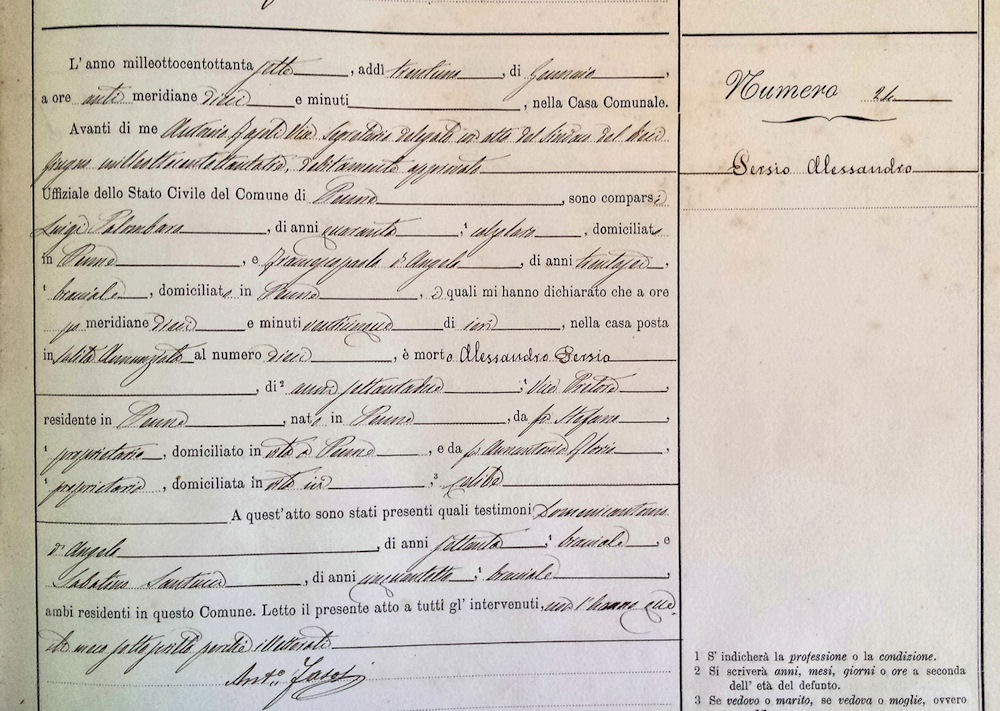 L' anno milleottocentottanta sette, addì trentuno, di Gennaio,
a ore anti meridiane dieci e minuti, nella Casa Comunale.
Avanti di me Antonio Vice Segretario delegato con atto del Sindaco del dieci
giugno milleottocentottantatre, debitamente approvato
Uffiziale dello Stato Civile del Comune di Penne, sono comparsi
Luigi Palombaro, di anni quaranta, ¹ calzolaio, domiciliato
in Penne, e Francescopaolo d'Angelo, di anni trentasei,
¹ bracciale, domiciliato in Penne, i quali mi hanno dichiarato che a ore
po meridiane dieci e minuti di ieri, nella casa posta
in Salita Annunziata al numero dieci, è morto Alessandro Persio
, di ² anni settantadue, ¹ Vice Pretore,
residente in Penne, nato in Penne, da fu Stefano,
¹ proprietario, domiciliato in vita a Penne, e da fu Gloria,
¹ proprietaria, domiciliata in vita ivi, ³ celibe
A quest'atto sono stati presenti quali testimoni Domenicantonio
d'Angelo, di anni settanta, ¹ bracciale, e
Sabatino Santucci, di anni cinquantotto, ¹ bracciale,
ambi residenti in questo Comune. Letto il presente atto a tutti gl' intervenuti, non l'hanno essi
meco sottoscritto perchè illetterati
Numero 24
Persio Alessandro
1 S' indicherà la professione o la condizione.
2 Si scriverà anni, mesi, giorni o ore a seconda
dell' età del defunto.
3 Se vedovo o marito, se vedova o moglie, ovvero